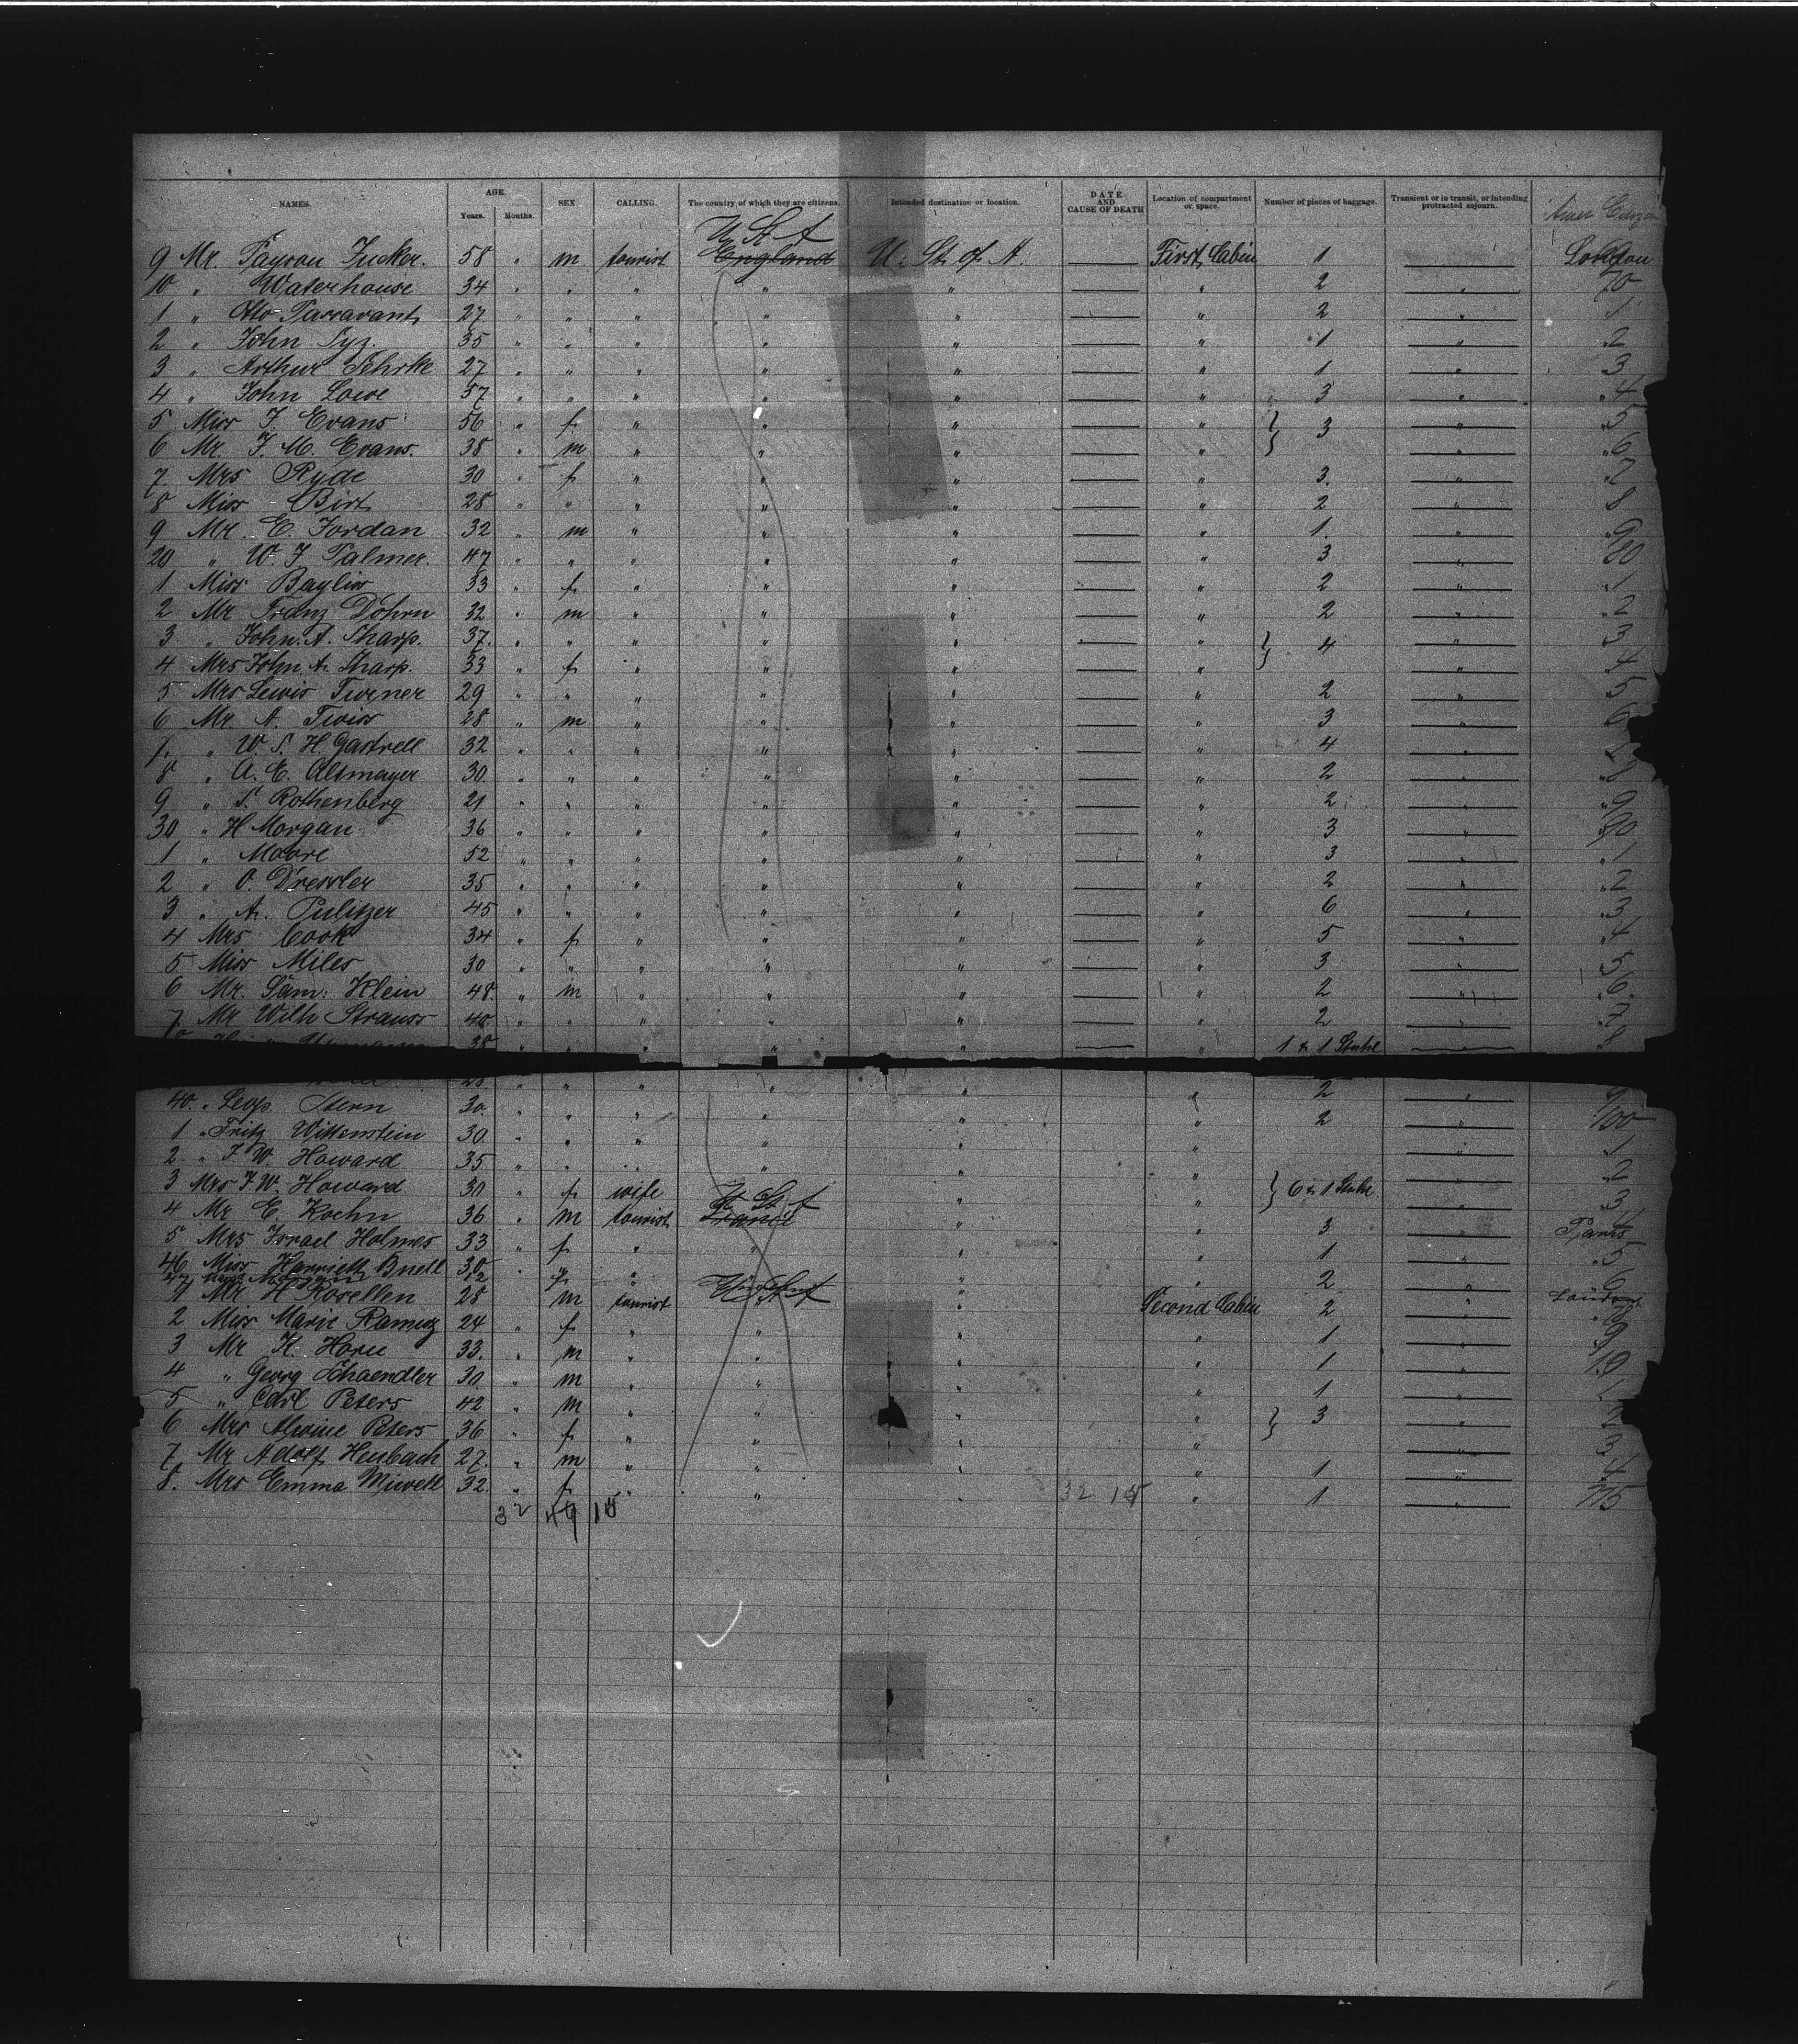 NAMES. AGE. Years. Months. SEX. CALLING. The country of which they are citizens. Intended destination or location. DATE AND CAUSE OF DEATH Location of compartment or space. Number of pieces of baggage. Transient or in transit, or intending protracted sojourn.
U. St. A
9 Mr. Tucker. 58 " m tourist England U. St. of A. First Cabin 1 London
10 " Waterhouse 34 " " " " " " 2 " 70
1 " Otto Passavant 27 " " " " " " 2 " 1
2 " John Syz. 35 " " " " " " 1 " 2
3 " Arthur 27 " " " " " " 1 " 3
4 " John Lowe 57 " " " " " " 3 " 4
5 Miss F. Evans 56 " f " " " " } 3 " 5
6 Mr. F. M. Evans. 38 " m " " " " " 6
7 Mrs Ryde 30 " f " " " " 3. " 7
8 Miss Birt 28 " " " " " " 2 " 8
9 Mr. E. Jordan 32 " m " " " " 1. " 9
20 " W. J. Palmer. 47 " " " " " " 3 " 80
1 Miss Bayliss 33 " f " " " " 2 " 1
2 Mr Franz Döhrn 32 " m " " " " 2 " 2
3 " John. A. Sharp. 37. " " " " " " } 4 " 3
4 Mrs John A. Sharp. 33 " f " " " " " 4
5 Mrs Lewis Turner 29 " " " " " " 2 " 5
6 Mr. A. Twiss 28 " m " " " " 3 " 6
7. " W. S. H. Gastrell 32 " " " " " " 4 "
8 " A. E. Altmayer 30. " " " " " " 2 " 8
9 " S. Rothenberg 21 " " " " " " 2 " 9
30 " H Morgan 36 " " " " " " 3 " 90
1 " Moore 52 " " " " " " 3 " 1
2 " O. Dressler 35 " " " " " " 2 " 2
3 " A. Pulitzer 45 " " " " " " 6 " 3
4 Mrs Cook 34 " f " " " " 5 " 4
5 Miss Miles 30 " " " " " " 3 " 5
6 Mr. Sam: Klein 48. " m " " " " 2 " 6.
7 Mr Wilh Strauss 40. " " " " " " 2 " 7
38 " " " " " " 1 & 1 Stuhl 8
28. " " " " " " 2 " 9
40. " Leop. Stern 30. " " " " " " 2 " 100
1 " Fritz Wittenstein 30. " " " " " " " 1
2 " F. W. Howard 35 " " " " " " } 6 & 1 Stuhl " 2
3 Mrs F. W. Howard 30 " f wife " " " 3
U St A
4 Mr E. Koehn 36 " m tourist France " " 3 " Paris
5 Mrs Israel Holmes 33 " f " " " " 1 " 5
46 Miss Harriett Buell 30. " " " " " 2 " 6
47 Morgan 12 f "
1 Mr H Rosellen 28 m tourist " Second Cabin 2 "
2 Miss Marie Ramuz 24 " f " " " " 1 " 9
3 Mr K. Horn 33. " m " " " " 1 " 10
4 " Georg Schaendler 30. " m " " " " 1 " 1
5 " Carl Peters 42 " m " " " " } 3 " 2
6 Mrs Alwine Peters 36 " f " " " " " 3
7 Mr Adolf Heubach 27. " m " " " " 1 " 4
8. Mrs Emma 32. " f " " " " 1 "
32